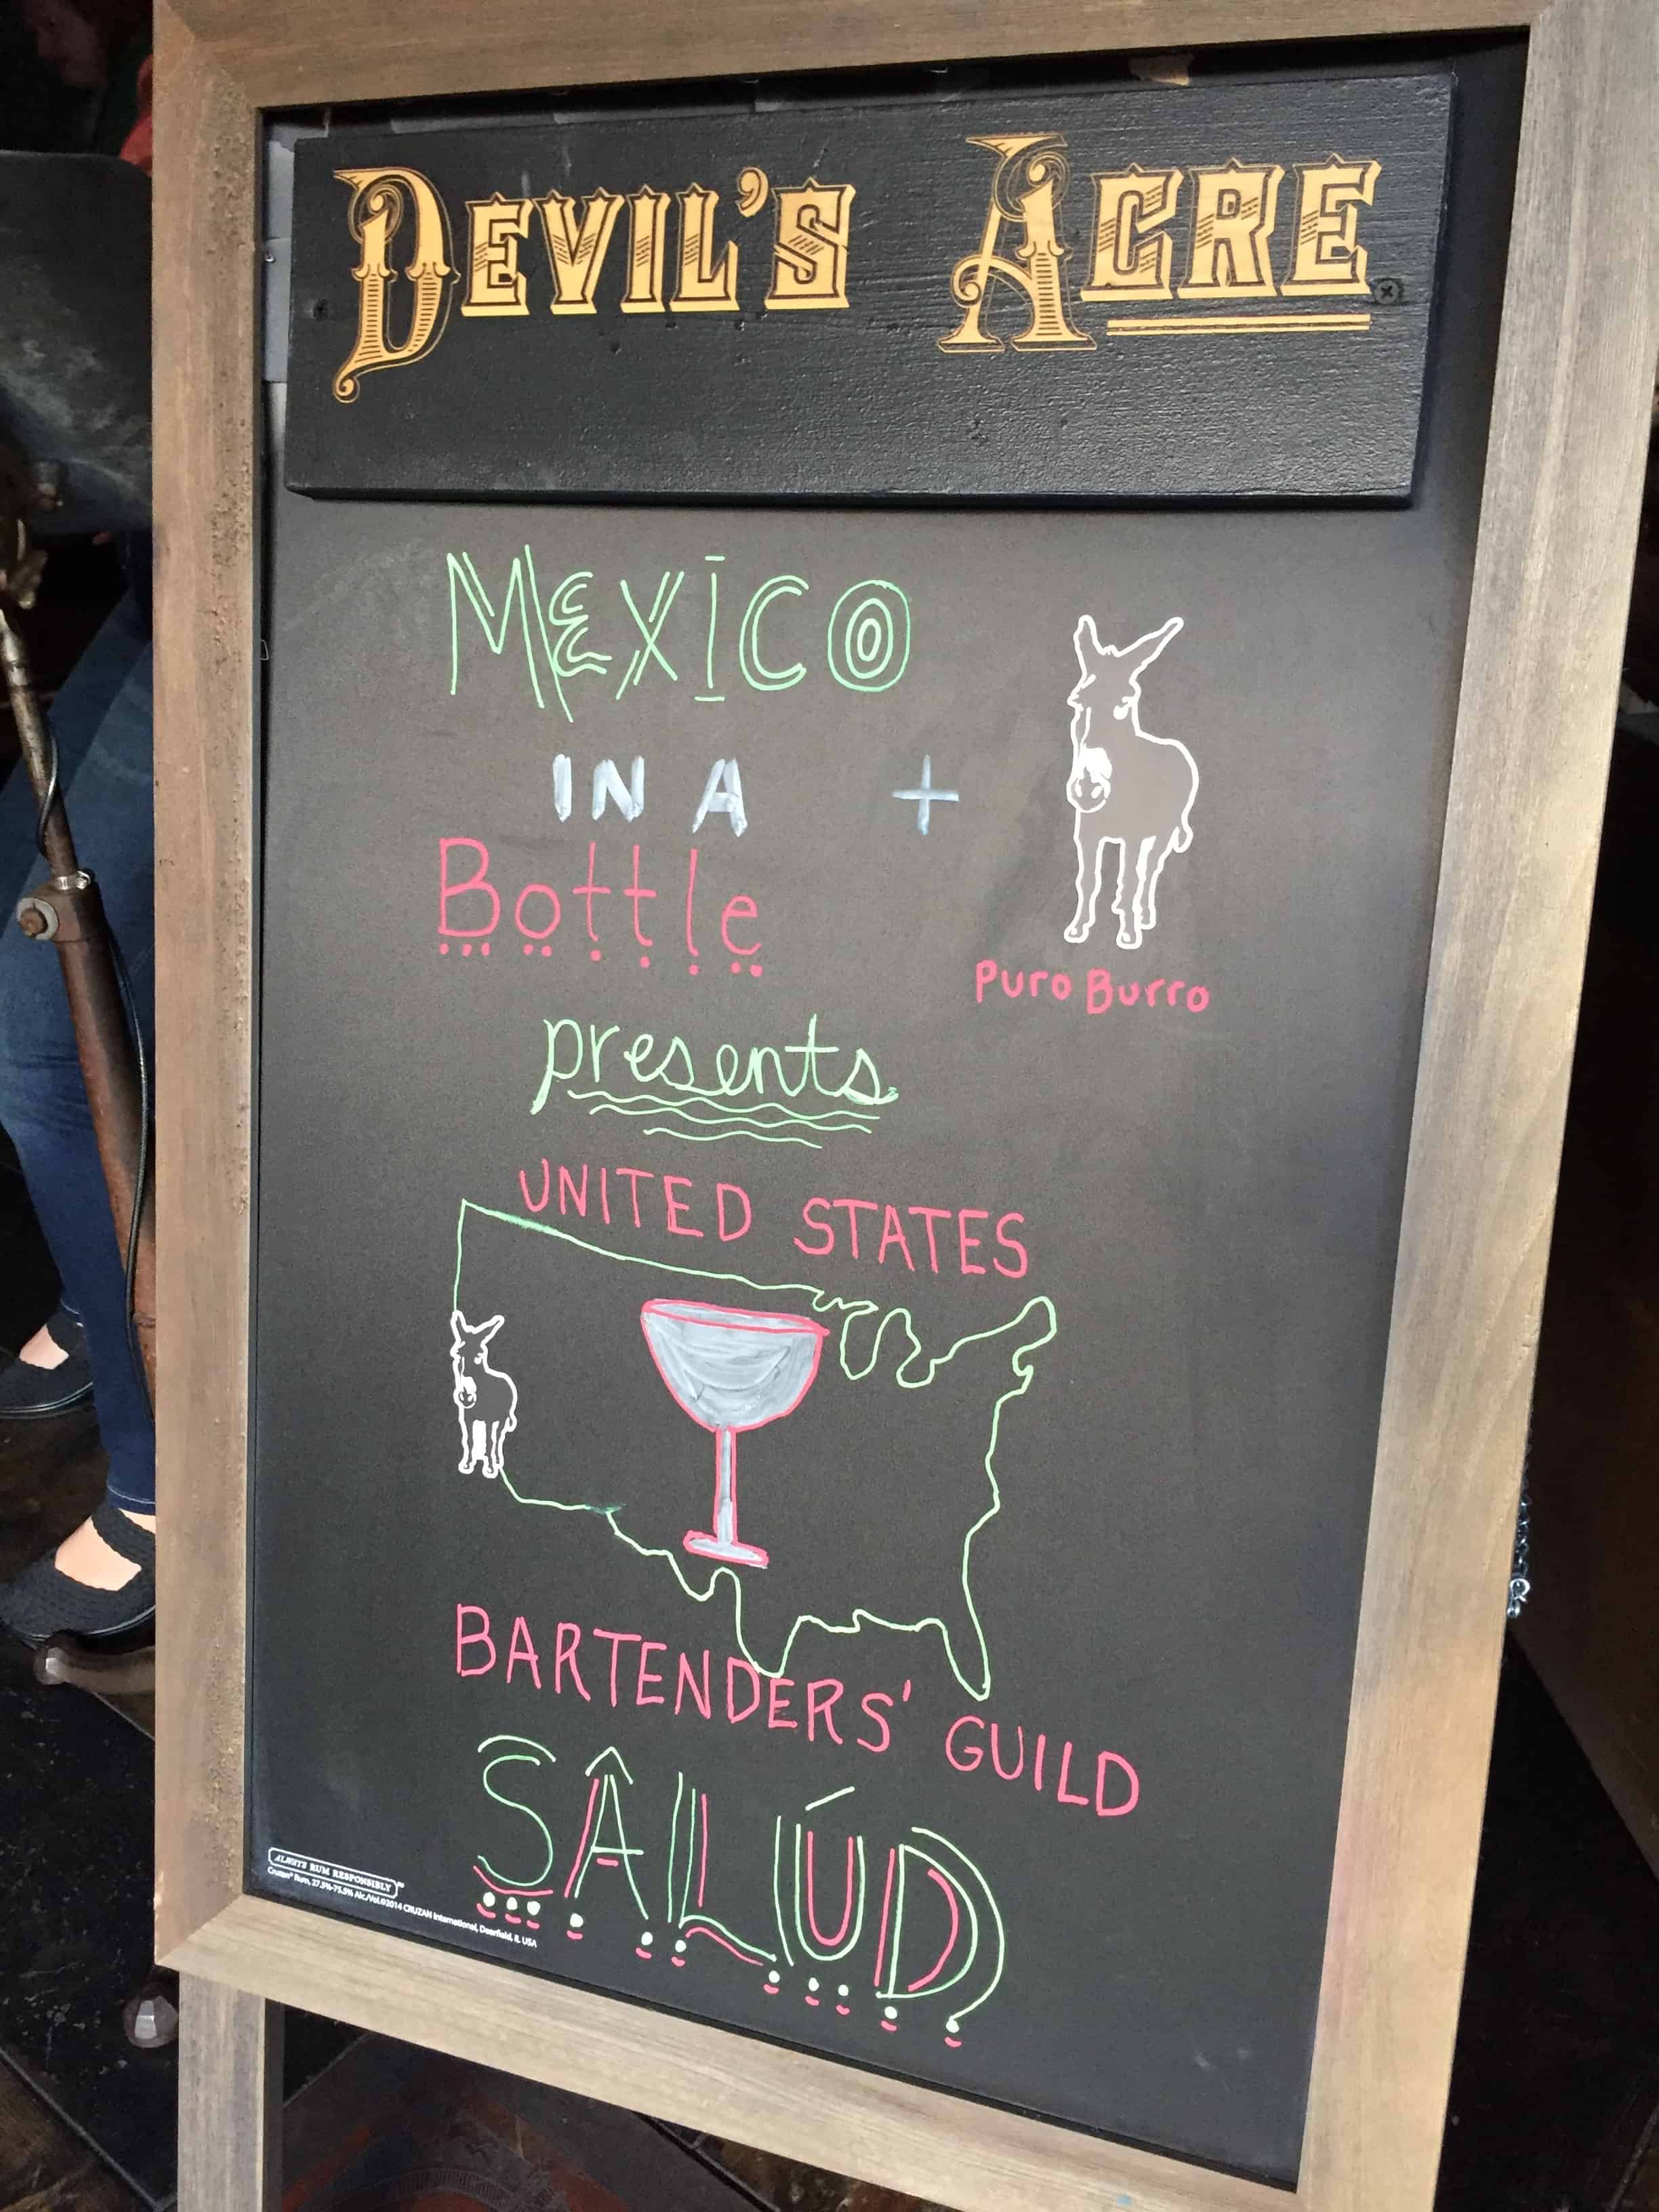 DEVIL'S ACRE
MEXICO
IN A +
Bottle
Puro Burro
presents
UNITED STATES
BARTENDERS' GUILD
SALÚD
ALWAYS RUM RESPONSIBLY™
Cruzan® Rum, 27.5%-75.5% Alc./Vol. ©2014 CRUZAN International, Deerfield, IL USA